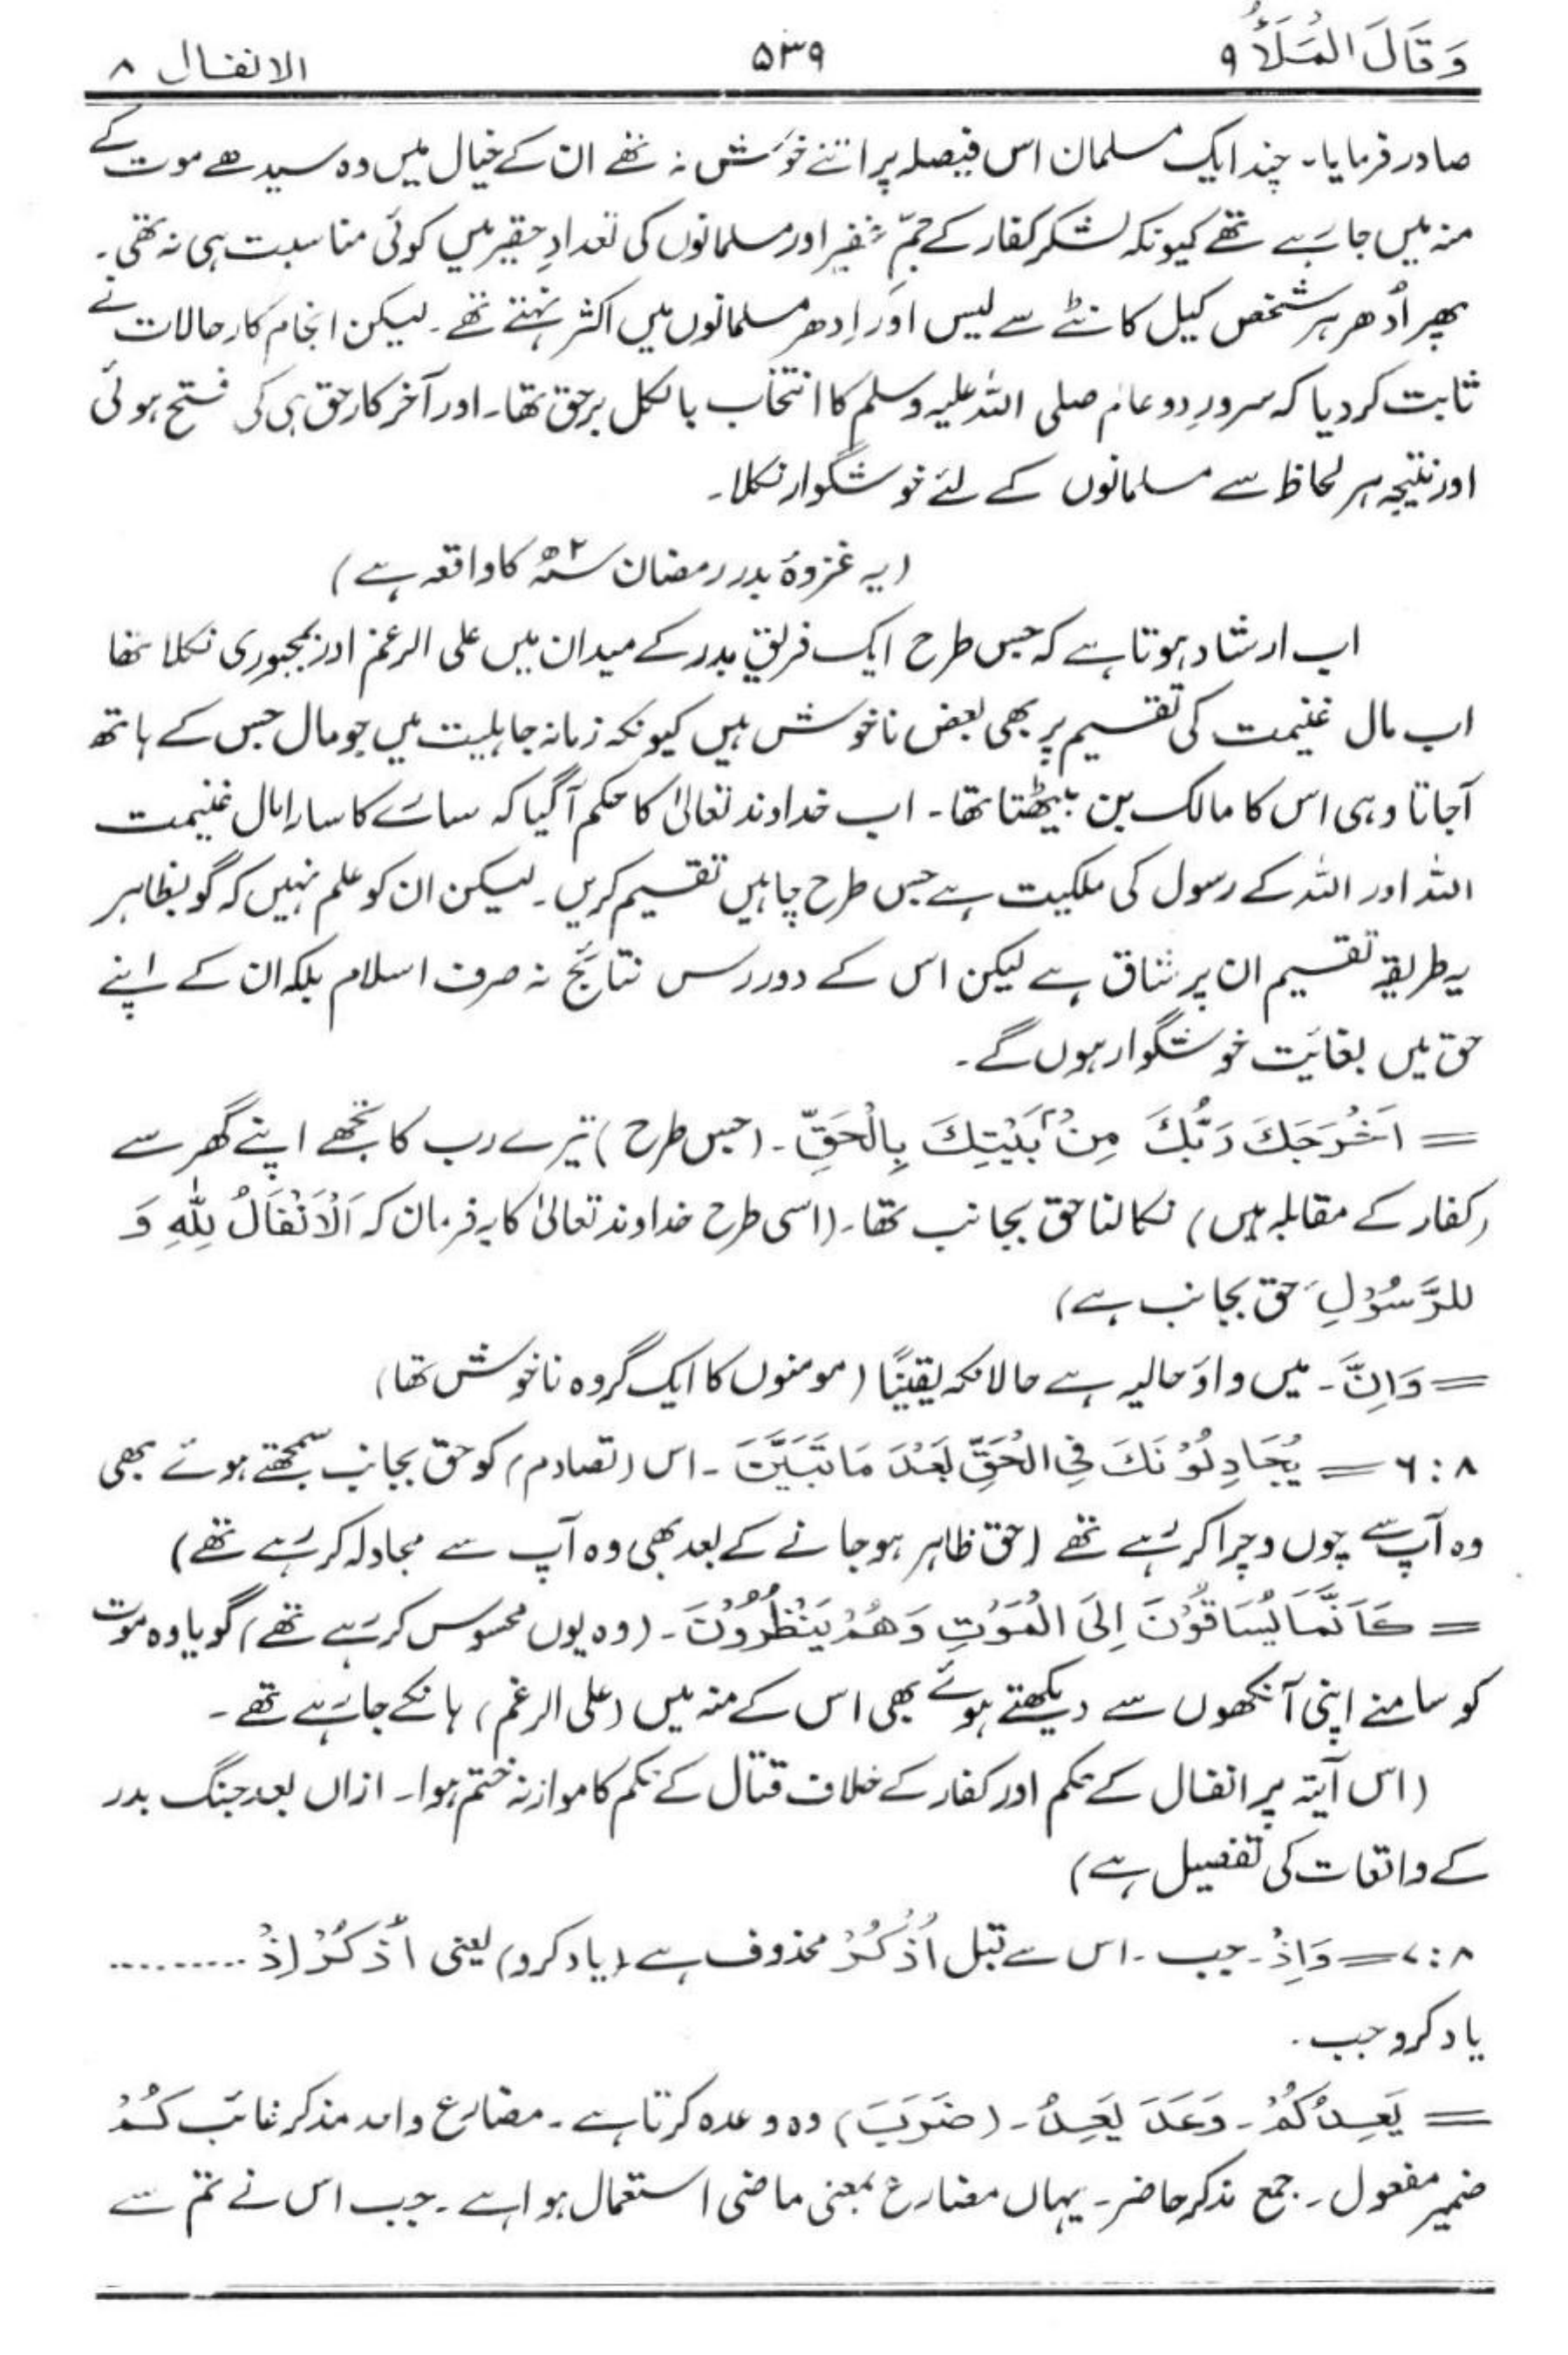 وَقَالَ الْمَلَأُ ۹ ۵۳۹ الانفال ۸
صادر فرمایا۔ چند ایک مسلمان اس فیصلہ پر اتنے خوش نہ تھے ان کے خیال میں وہ سیدھے موت کے
منہ میں جا رہے تھے کیونکہ لشکر کفار کے جمِّ غفیر اور مسلمانوں کی تعدادِ حقیر میں کوئی مناسبت ہی نہ تھی۔
پھر اُدھر ہر شخص کیل کانٹے سے لیس اور اِدھر مسلمانوں میں اکثر نہتے تھے۔ لیکن انجام کار حالات نے
ثابت کر دیا کہ سرورِ دو عالم صلی اللہ علیہ وسلم کا انتخاب بالکل برحق تھا۔ اور آخر کار حق ہی کی فتح ہوئی
اور نتیجہ ہر لحاظ سے مسلمانوں کے لئے خوشگوار نکلا۔
(یہ غزوۂ بدر رمضان سنہ ۲ھ کا واقعہ ہے)
اب ارشاد ہوتا ہے کہ جس طرح ایک فریق بدر کے میدان میں علی الرغم اور بمجبوری نکلا تھا
اب مال غنیمت کی تقسیم پر بھی بعض ناخوش ہیں کیونکہ زمانہ جاہلیت میں جو مال جس کے ہاتھ
آجاتا وہی اس کا مالک بن بیٹھتا تھا۔ اب خداوند تعالیٰ کا حکم آگیا کہ سارے کا سارا مال غنیمت
اللہ اور اللہ کے رسول کی ملکیت ہے جس طرح چاہیں تقسیم کریں۔ لیکن ان کو علم نہیں کہ گو بظاہر
یہ طریقہ تقسیم ان پر شاق ہے لیکن اس کے دوررس نتائج نہ صرف اسلام بلکہ ان کے اپنے
حق میں بغایت خوشگوار ہوں گے۔
= اَخْرَجَكَ رَبُّكَ مِنْۢ بَيْتِكَ بِالْحَقِّ۔ (جس طرح) تیرے رب کا تجھے اپنے گھر سے
(کفار کے مقابلہ میں) نکالنا حق بجانب تھا۔ (اسی طرح خداوند تعالیٰ کا یہ فرمان کہ اَلْاَنْفَالُ لِلّٰهِ وَ
للرَّسُوْلِ حق بجانب ہے)
= وَاِنَّ۔ میں واؤ حالیہ ہے حالانکہ یقینًا (مومنوں کا ایک گروہ ناخوش تھا)
۶:۸ = يُجَادِلُوْنَكَ فِي الْحَقِّ بَعْدَ مَا تَبَيَّنَ۔ اس (تصادم) کو حق بجانب سمجھتے ہوئے بھی
وہ آپ سے چوں وچرا کر رہے تھے (حق ظاہر ہو جانے کے بعد بھی وہ آپ سے مجادلہ کر رہے تھے)
= كَاَنَّمَا يُسَاقُوْنَ اِلَى الْمَوْتِ وَهُمْ يَنْظُرُوْنَ۔ (وہ یوں محسوس کر رہے تھے) گویا وہ موت
کو سامنے اپنی آنکھوں سے دیکھتے ہوئے بھی اس کے منہ میں (علی الرغم) ہانکے جا رہے تھے۔
(اس آیتہ پر انفال کے حکم اور کفار کے خلاف قتال کے حکم کا موازنہ ختم ہوا۔ ازاں بعد جنگ بدر
کے واقعات کی تفصیل ہے)
۷:۸ = وَاِذْ۔ جب۔ اس سے قبل اُذْكُرْ محذوف ہے (یاد کرو) یعنی اُذْكُرْ اِذْ ..........
یاد کرو جب۔
= يَعِدُكُمْ۔ وَعَدَ يَعِدُ۔ (ضَرَبَ) وہ وعدہ کرتا ہے۔ مضارع واحد مذکر غائب كُمْ
ضمیر مفعول۔ جمع مذکر حاضر۔ یہاں مضارع بمعنی ماضی استعمال ہوا ہے۔ جب اس نے تم سے